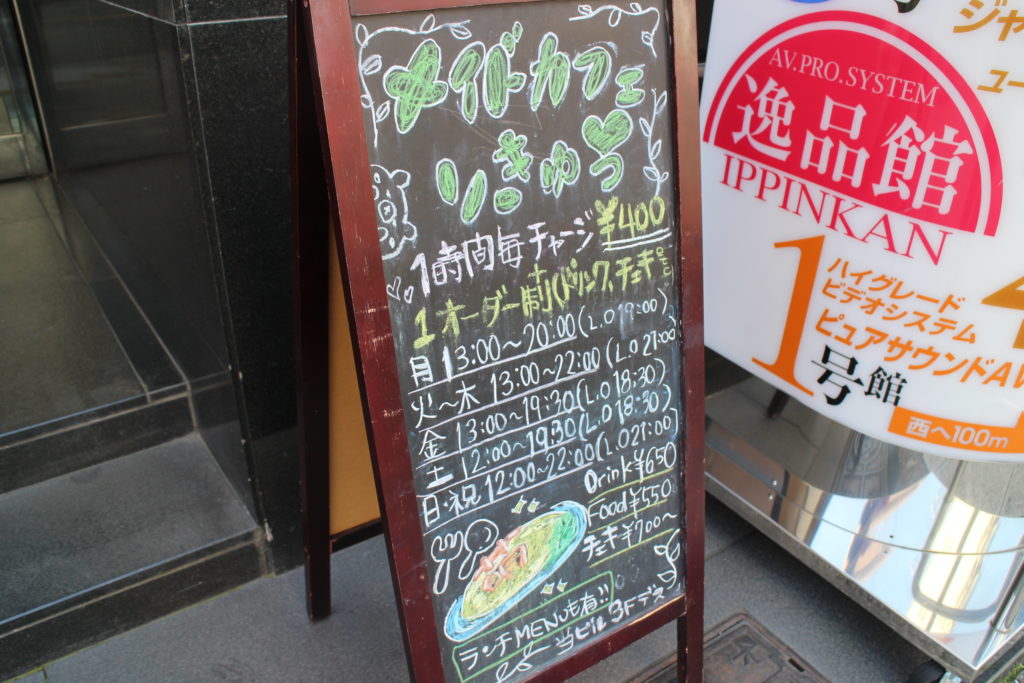 メイドカフェ
りきゅう
1時間毎チャージ ¥400
1オーダー制(ドリンク、チェキetc)
月 13:00〜20:00(L.O 19:00)
火〜木 13:00〜22:00(L.O 21:00)
金 13:00〜19:30(L.O 18:30)
土 12:00〜19:30(L.O 18:30)
日・祝 12:00〜22:00(L.O 21:00)
Drink ¥650
Food ¥550
チェキ ¥700〜
ランチMENUも有!!
当ビル3Fデス
AV.PRO.SYSTEM
逸品館
IPPINKAN
1号館
ハイグレード
ビデオシステム
ピュアサウンドAV
西へ100m
ジャ
ユー